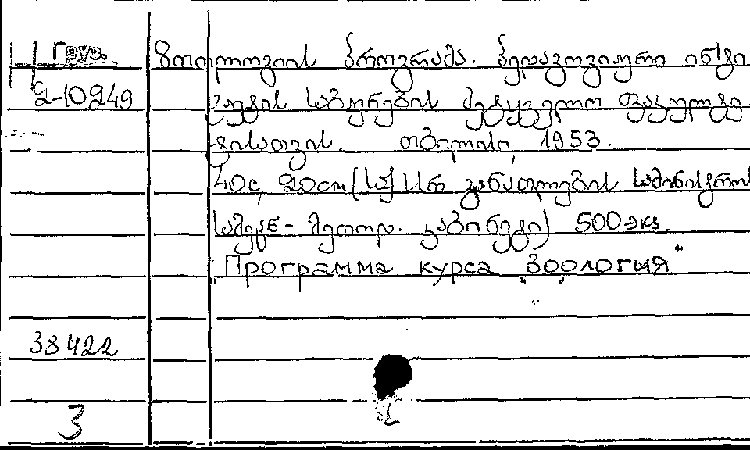 Груз.
2-10249
ზოოლოგიის პროგრამა. პედაგოგიური ინსტი
ტუტის საბუნების მეტყველო ფაკულტე
ტისათვის. თბილისი, 1953.
40с, 20см (საქ სსრ განათლების სამინისტროს
სამეც - მეთოდ. კაბინეტი) 500 экз.
"Программа курса "Зоология"
38422
3